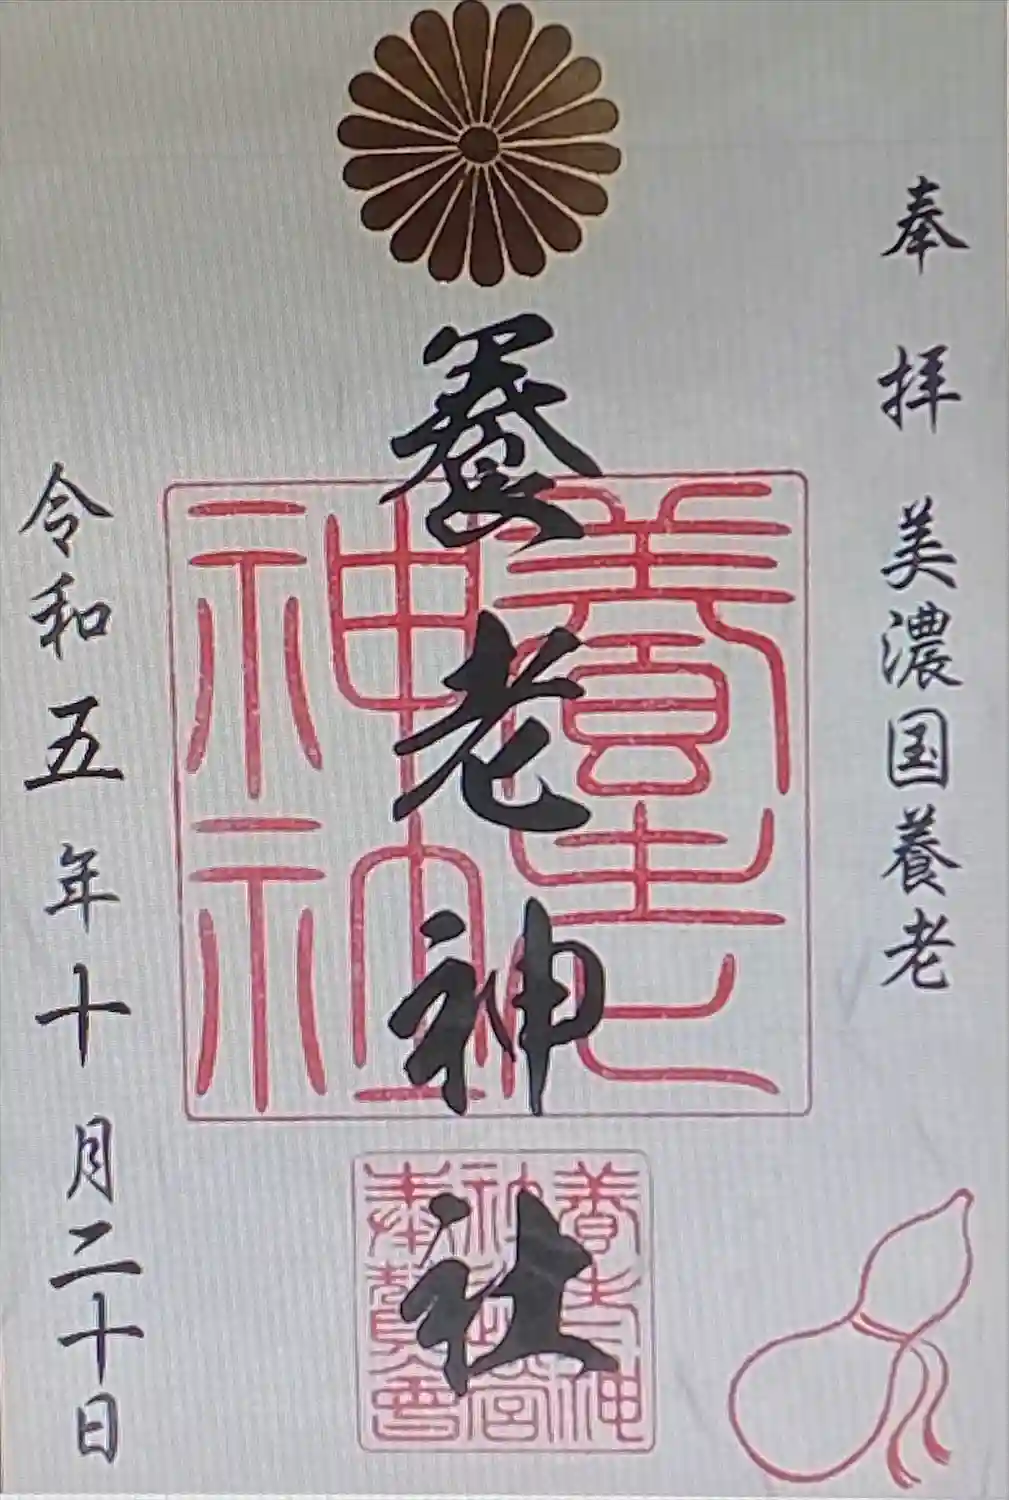 奉拝 美濃国養老
養老神社
養老
神社
養老神
社造営
奉賛會
令和五年十月二十日